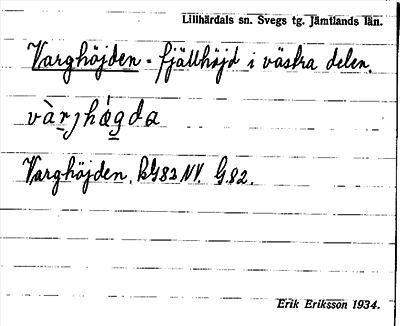 Lillhärdals sn. Svegs tg. Jämtlands län.
Varghöjden - fjällhöjd i västra delen.
Varghöjden. BG83NV. G.82.
Erik Eriksson 1934.